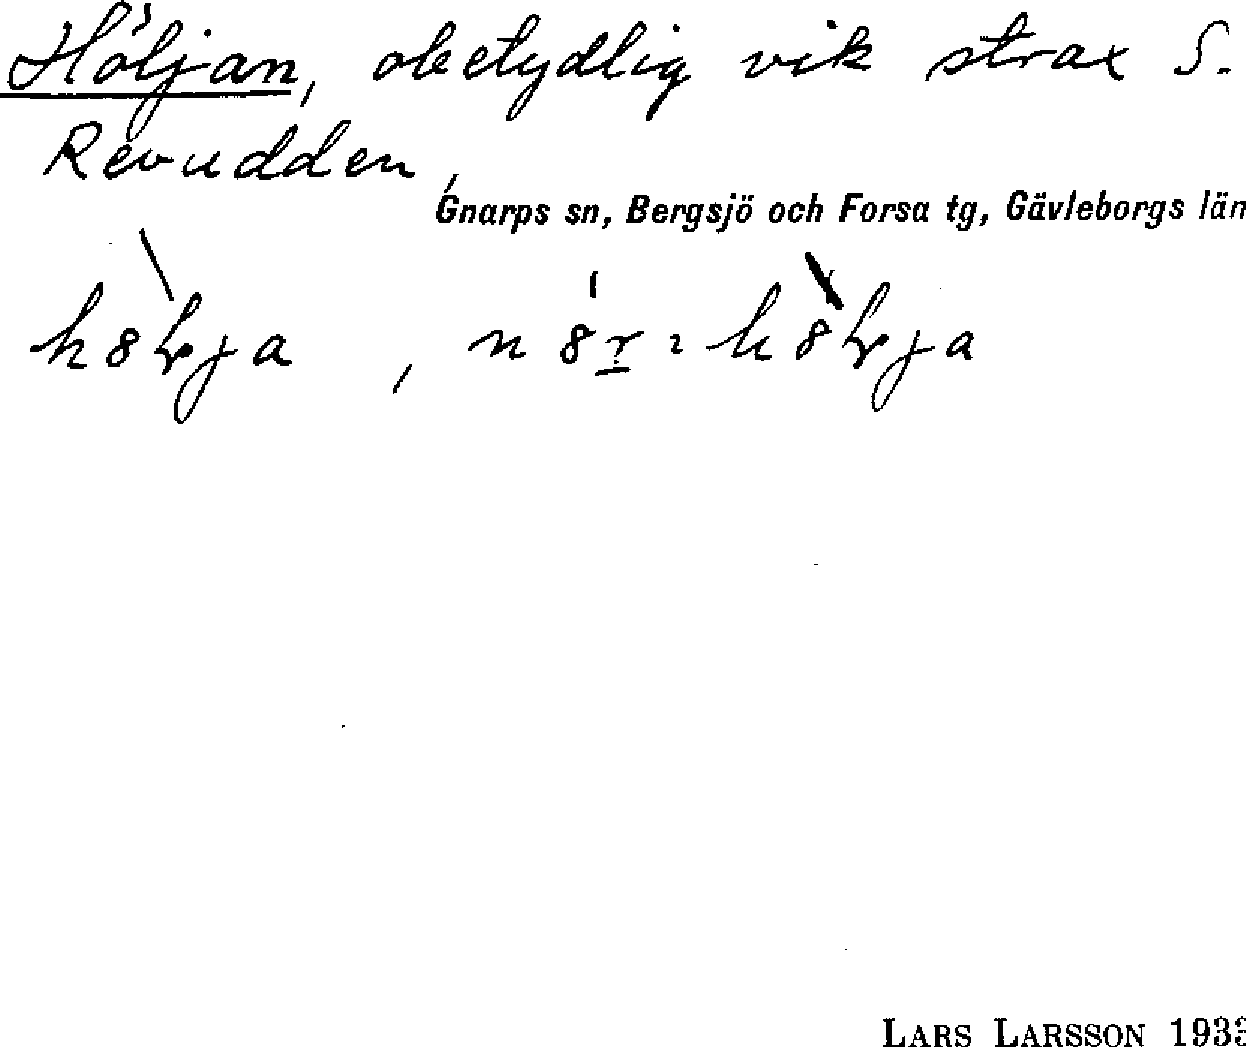 Höljan, obetydlig vik strax S.
Revudden,
Gnarps sn, Bergsjö och Forsa tg, Gävleborgs län
LARS LARSSON 1933